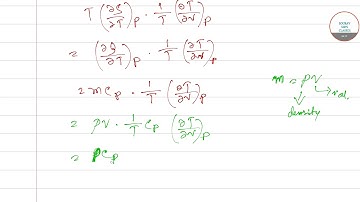 T (∂S/∂T)_P · 1/T (∂T/∂V)_P
= (∂Q/∂T)_P · 1/T (∂T/∂V)_P
= m C_P · 1/T (∂T/∂V)_P
= ρV · 1/T C_P (∂T/∂V)_P
= ρC_P
m = ρV
→ vol.
density